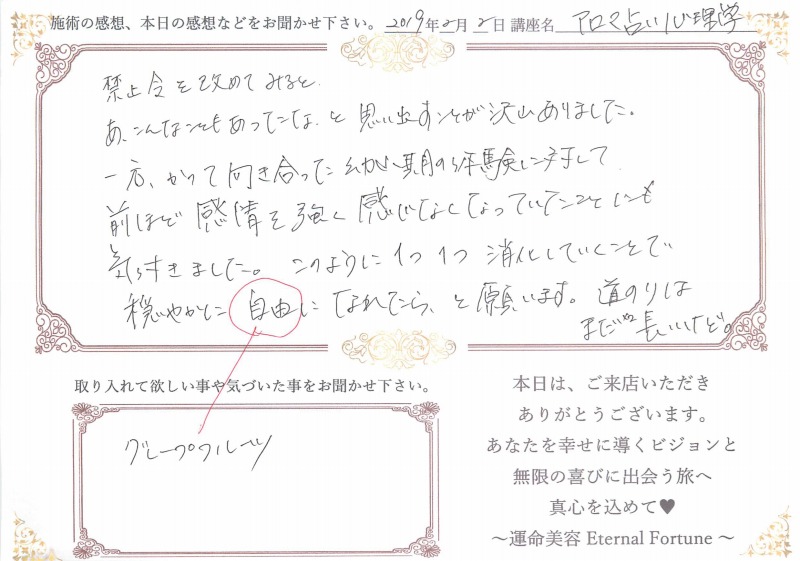 施術の感想、本日の感想などをお聞かせ下さい。2019年2月2日 講座名 アロマ占い心理学
禁止令を改めてみると、
あ、こんなこともあったこな、と思い出すことが沢山ありました。
一方、かつて向き合った幼少期の体験に対して
前ほど感情を強く感じなくなっていたことにも
気づきました。このように1つ1つ消化していくことで
穏やかに自由になれたら、と願います。道のりは
まだ長いけど。
取り入れて欲しい事や気づいた事をお聞かせ下さい。
グレープフルーツ
本日は、ご来店いただき
ありがとうございます。
あなたを幸せに導くビジョンと
無限の喜びに出会う旅へ
真心を込めて♥
～運命美容 Eternal Fortune ～